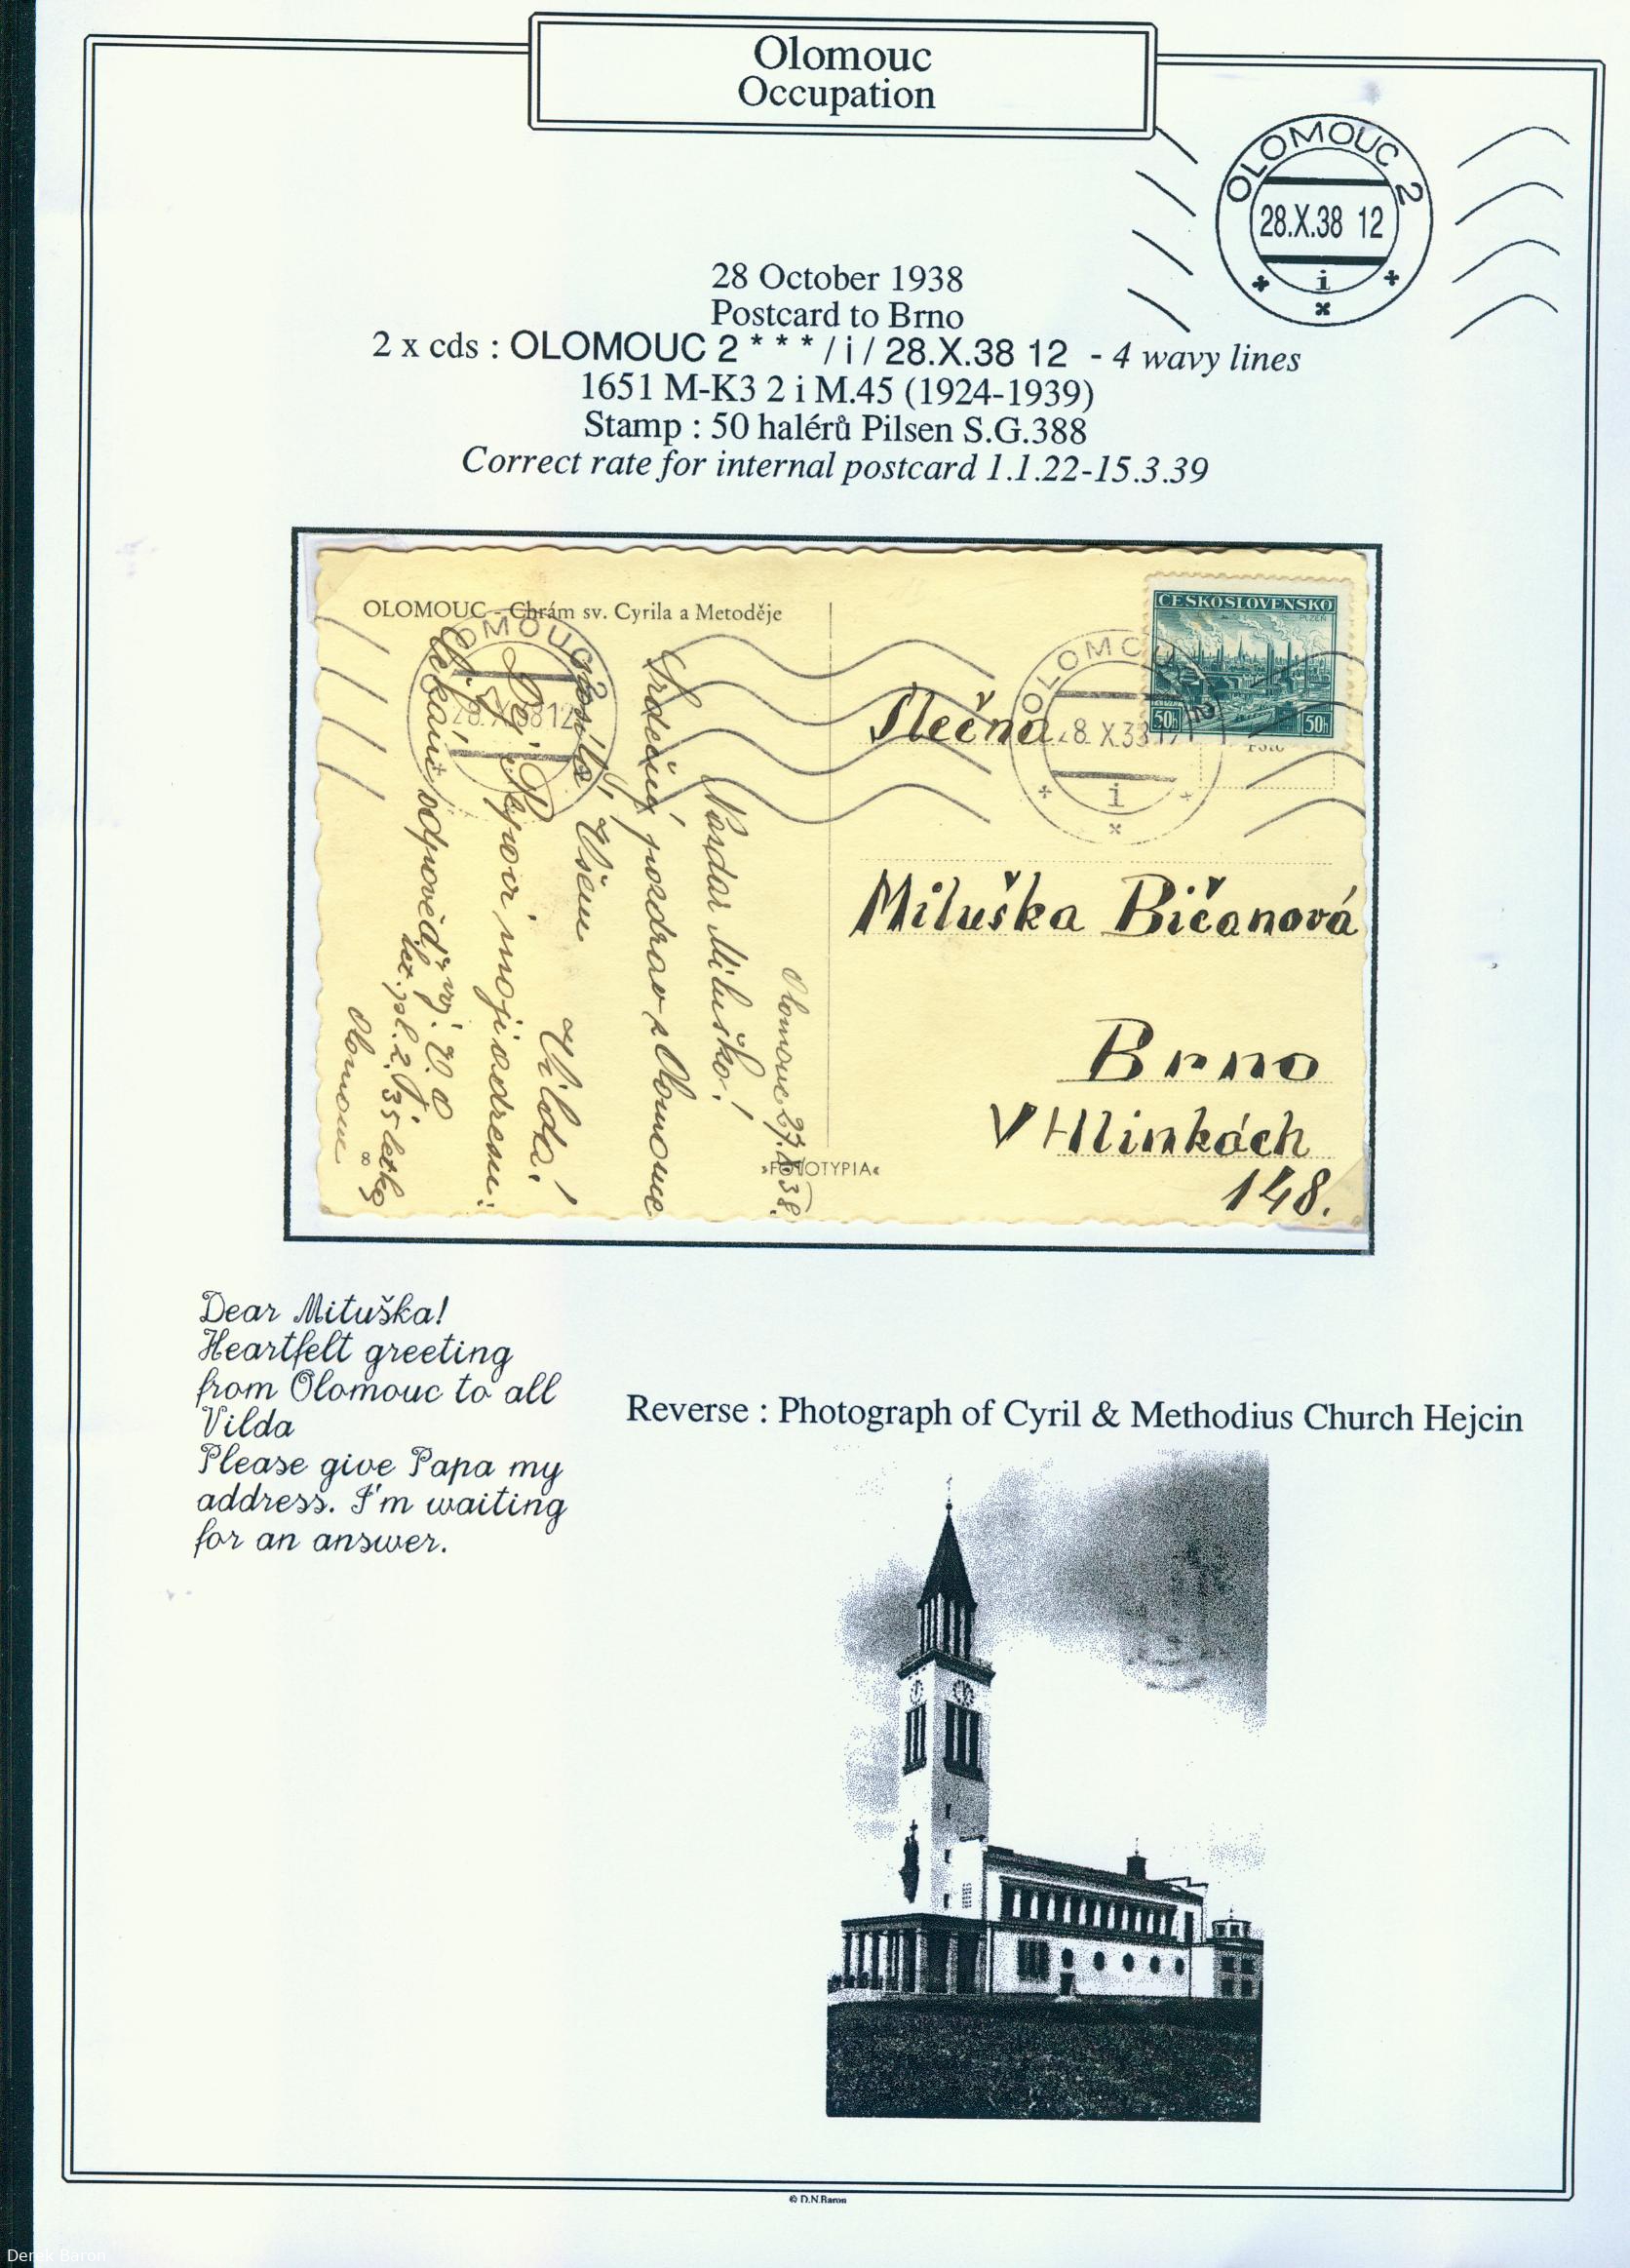 Olomouc
Occupation
OLOMOUC 2
28.X.38 12
i
28 October 1938
Postcard to Brno
2 x cds : OLOMOUC 2 * * * / i / 28.X.38 12 - 4 wavy lines
1651 M-K3 2 i M.45 (1924-1939)
Stamp : 50 halérů Pilsen S.G.388
Correct rate for internal postcard 1.1.22-15.3.39
OLOMOUC - Chrám sv. Cyrila a Metoděje
Olomouc 27.X.38.
Nazdar Miluško!
Srdečný pozdrav z Olomouce
posílá Všem
Vilda!
Dej Papovi moji adresu:
Čekám odpověď voj. V. O
let. pl. 2.
Olomouc 8
»FOTOTYPIA«
ČESKOSLOVENSKO
PLZEŇ
50h 50h
OLOMOUC 2
28.X.38 12
OLOMOUC 2
28.X.38 12
i
Slečna
Miluška Bičanová
Brno
V Hlinkách
148.
Dear Mituška!
Heartfelt greeting
from Olomouc to all
Vilda
Please give Papa my
address. I'm waiting
for an answer.
Reverse : Photograph of Cyril & Methodius Church Hejcin
© D.N.Baron
Derek Baron